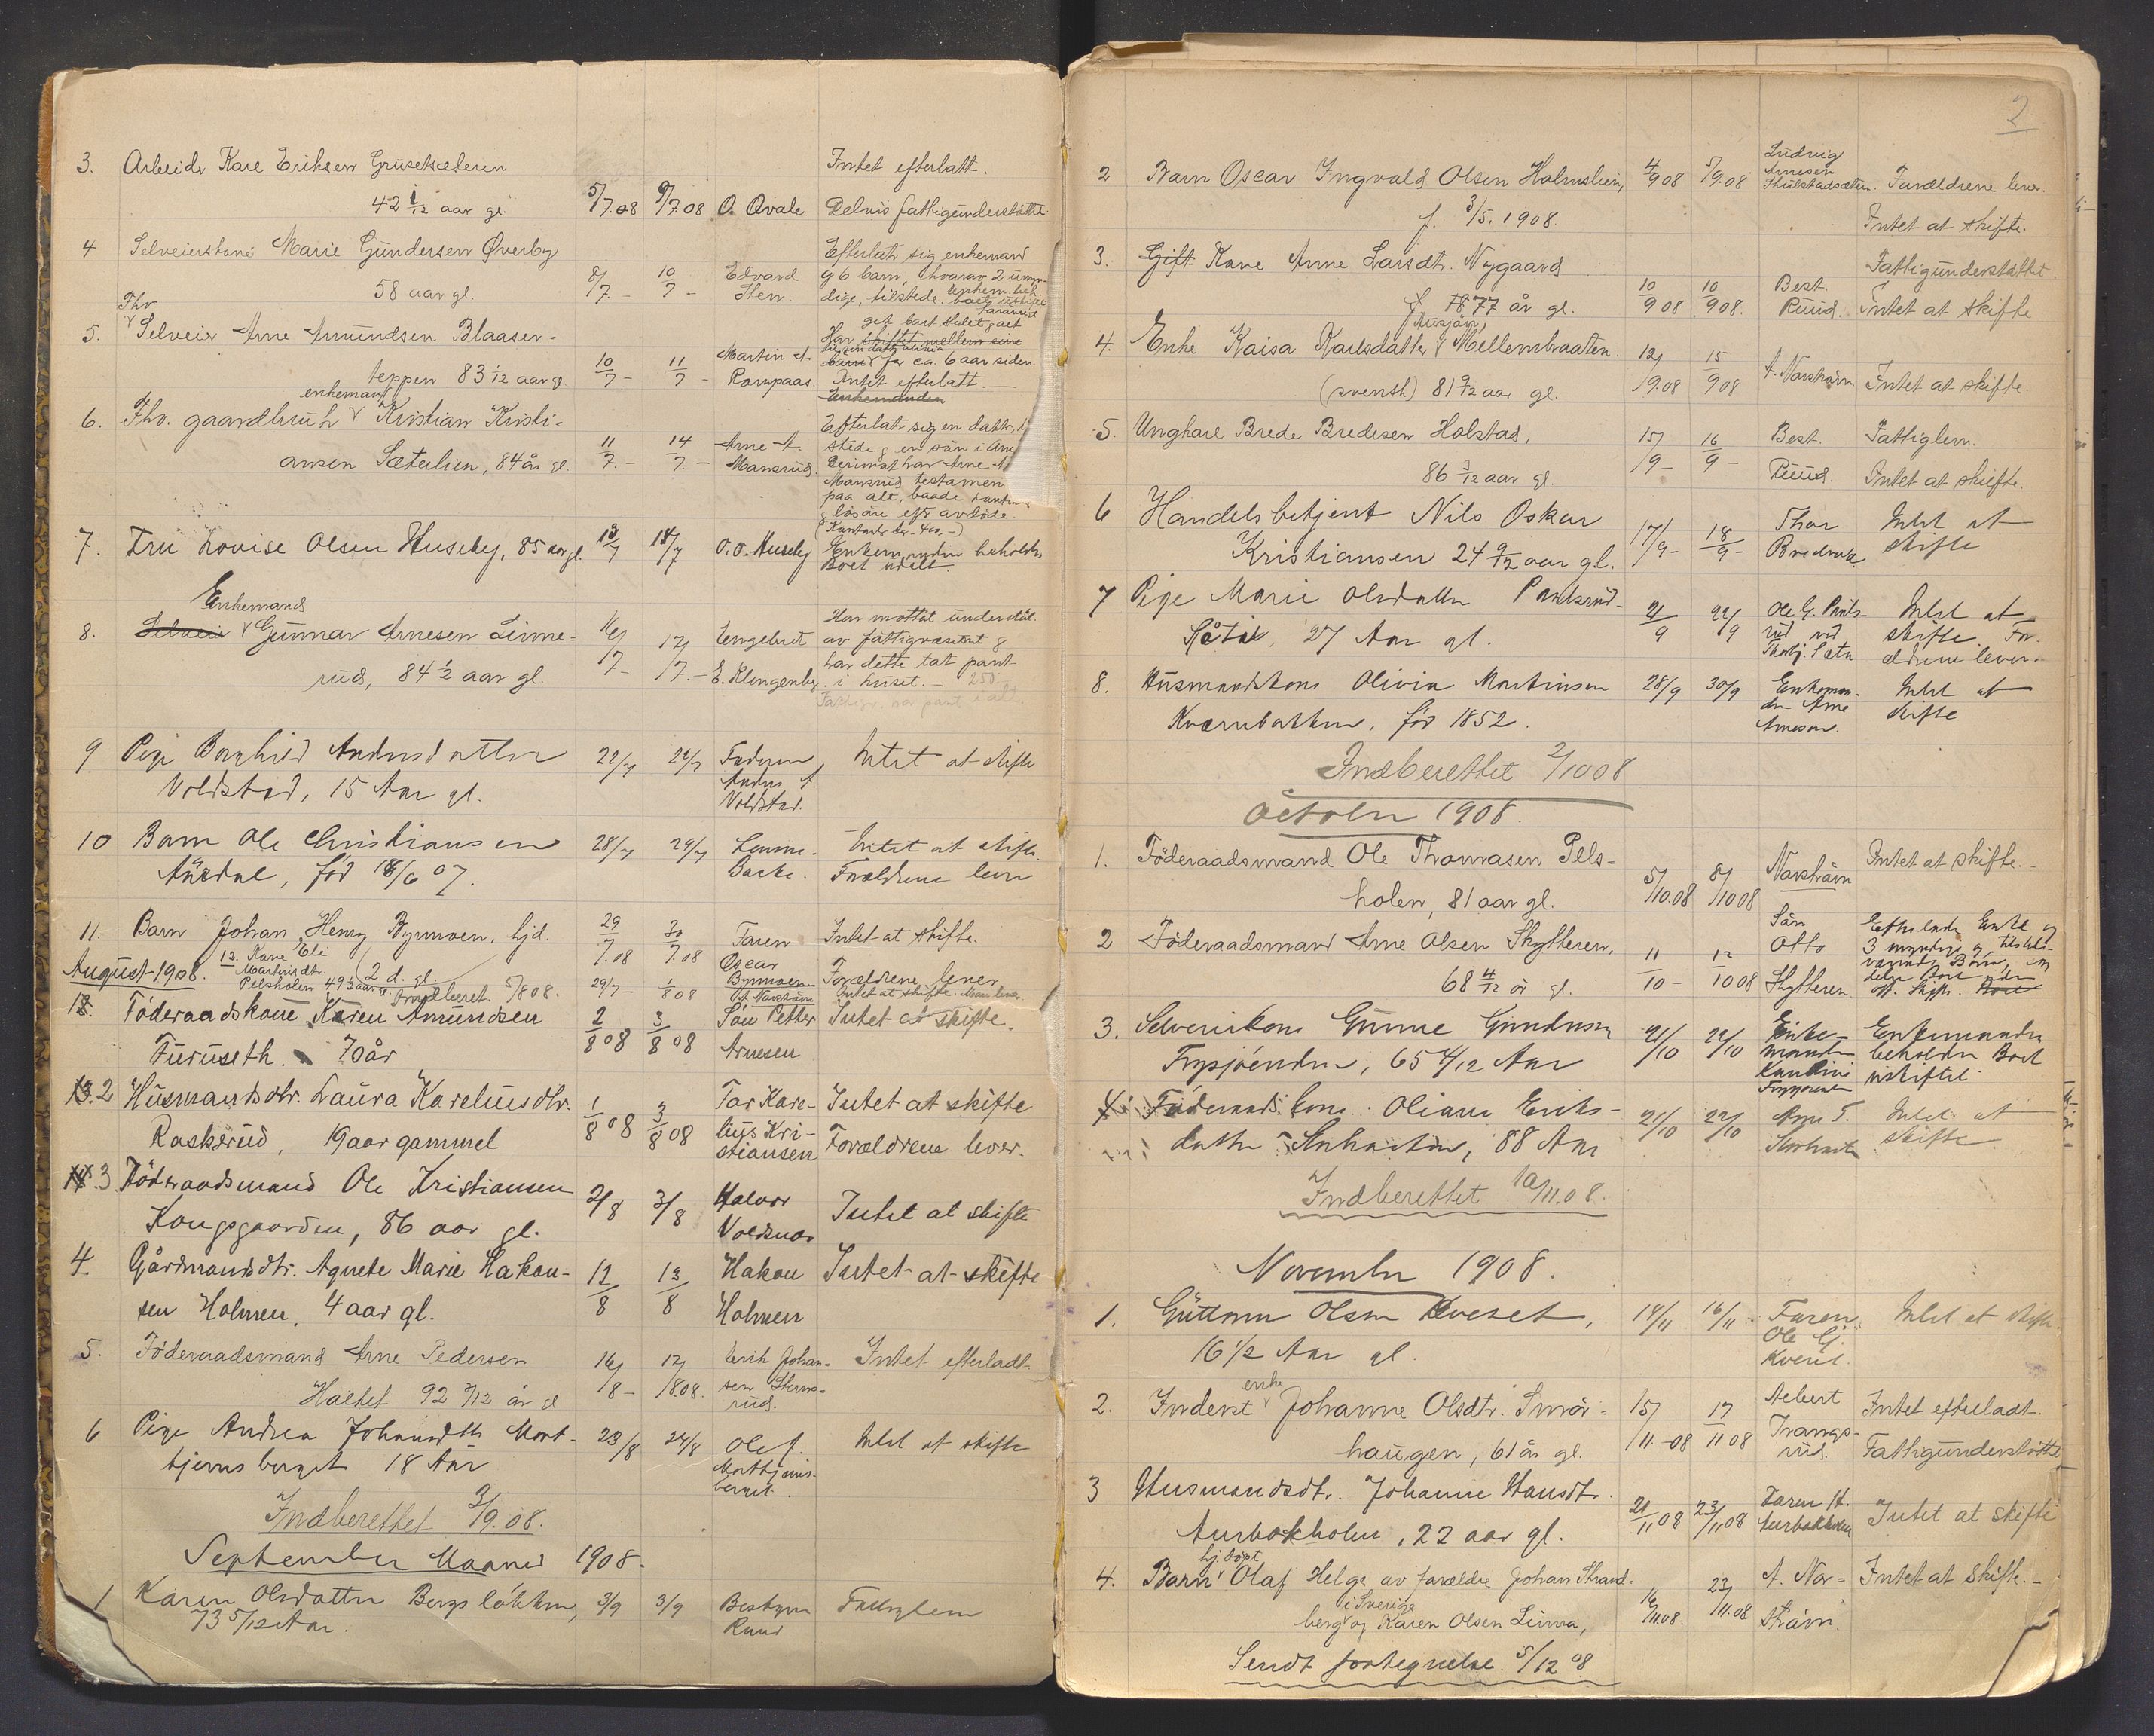 3. Arbeider Kare Eriksen Grüsetsæteren
Intet efterlatt.
42 1/12 aar gl. 5/7.08 9/7.08 O. Qvale Delvis fattigunderstöttet
4 Selveierskone Marie Gundersen Øverby
58 aar gl. 8/7. - 10/7 - Edvard Iver.
Efterlater sig enkemand
og 6 barn, hvorav 2 umyn-
dige, tilstede.
5. Fhv. Selveier Arne Amundsen Blaaser-
teppen 83 1/12 aar gl. 10/7 - 11/7 - Martin A. Rompaas.
Har skiftet mellem sine
barn for ca. 6 aar siden.
Intet efterlatt. -
Enkemanden
6. Fhv. gaardbruker enkemand Kristian Kristi-
ansen Sæterlien, 84 år gl. 11/7. - 14/7. - Arne A. Mansrud.
Efterlater sig en datter, til
stede og en sön i Am
Derimot har Arne A.
Mansrud testamen
paa alt, baade
lösöre eft. avdöde.
7. Fru Lovise Olsen Huseby, 85 aar gl. 13/7 18/7 O. O. Huseby
Enkemanden beholder
Boet udelt.
8. Selveier Enkemand Gunnar Arnesen Linne-
rud, 84 1/2 aar gl. 16/7 - 17/7. - Engebret E. Klingenberg.
Har mottat understöt.
av fattigvæsenet &
har dette tat pant
i huset. - 250
9 Pige Borghild Andersdatter
Voldstad, 15 Aar gl. 22/7 24/7 Faderen Anders A. Voldstad.
Intet at skifte
10 Barn Ole Christiansen
Aasdal, föd 18/6 07. 28/7 29/7 Lensm. Bakke.
Intet at skifte.
Forældrene lever
11. Barn Johan Henry Bynmoen, hjd.
2 d. gl. 29/7.08 30/7.08 Faren Oscar Bynmoen
Intet at skifte.
Forældrene lever
12. Kone Eli Martinsdtr.
Pelsholen 49 3 aar gl. 29/7 - 1/8 08 A. Narsträvn Intet at skifte. Man lever.
August 1908. Indberet. 5/8 08.
1. Föderaadskone Karen Amundsen
Furuseth. 70 år 2/8 08 3/8 08 Sön Petter Arnesen
Intet at skifte.
13. 2 Husmandsdtr. Laura Kareliusdtr.
Raskerud, 19 aar gammel 1/8 08 3/8 08 Far Kare-
lius Kri-
stiansen
Intet at skifte
Forældrene lever.
14. 3 Föderaadsmand Ole Kristiansen
Kongsgaarden, 86 aar gl. 2/8 3/8 Halvor Voldmoe
Intet at skifte
4. Gårdmandsdtr. Agnete Marie Hakon-
sen Holmen, 4 aar gl. 12/8 13/8 Hakon Holmen
Intet at skifte
5. Föderaadsmand Arne Pedersen
Haltet 92 7/12 år gl 16/8 - 17/8.08. Erik Johan-
sen Stens-
rud.
Intet efterladt
6 Pige Andrea Johansdtr Mort-
tjernsberget 18 Aar 23/8 24/8 Ole J. Morttjerns-
berget.
Intet at skifte
Indberettet 3/9.08.
September Maaned 1908.
1 Karen Olsdatter Bergslökken,
73 5/12 Aar. 3/9 3/9 Bestyrer Ruud
Fattiglem
2
2 Barn Oscar Ingvald Olsen Holmslien,
f. 3/5. 1908. 4/9 08 5/9.08 Ludvig Arnesen Skulstadsæter.
Forældrene lever.
Intet at skifte.
3. Gift Kone Anne Larsdtr. Nygaard
f. 18 77 år gl. 10/9 08 10/9 08. Best. Ruud.
Fattigunderstöttet.
Intet at skifte
4. Enke Kaisa Karlsdatter Mellembraaten.
(svensk) 81 9/12 aar gl. 12/9.08 15/9 08 A. Narsträvn
Intet at skifte.
5. Ungkarl Brede Bredesen Holstad,
86 7/12 aar gl. 15/9 - 16/9 - Best. Ruud.
Fattiglem.
Intet at skifte.
6 Handelsbetjent Nils Oskar
Kristiansen 24 9/12 aar gl. 17/9 - 18/9 - Thor Bredvak
Intet at
skifte
7 Pige Marie Olsdatter Pantsrud-
27 Aar gl. 21/9 22/9 Ole G. Pants-
rud ved
Thorbj. Sæter
Intet at
skifte. For-
ældrene lever.
8. Husmandskone Olivia Martinsen
Kværnbakken, föd 1852. 28/9 30/9 Enkeman-
den Arne
Arnesen.
Intet at
skifte
Indberettet 2/10 08
October 1908.
1. Föderaadsmand Ole Thomasen Pels-
holen, 81 aar gl. 5/10.08 8/10 08 Narsträvn
Intet at skifte. -
2 Föderaadsmand Arne Olsen Skytteren,
68 4/12 år gl. 11/10 - 12/10 08 Sön Otto Skytteren
Efterlader Enke og
3 myndige og tilstede-
værende Börn, som
deler Boet uden
off. Skifte.
3. Selveierkone Gunne Gundersen
Frysjöenden, 65 4/12 Aar 21/10 22/10 Enke-
manden
Enkemanden
beholder Boet
uskiftet
4. Föderaads kone Oliane Eriks-
datter 88 Aar 21/10 22/10
Intet at
skifte
Indberettet 10/11.08.
November 1908.
1. Guttorm Olsen Kveset,
16 1/2 Aar gl. 14/11 16/11 Faren Ole G. Kveset.
Intet at skifte
2. Inderst enke Johanne Olsdtr. Smör-
haugen, 61 år gl. 15/11.-08 17/11 08 Albert Trangs-
rud.
Intet efterladt.
Fattigunderstöttet
3 Husmandsdtr. Johanne Hansdtr.
Aurbakkholen, 22 aar gl. 21/11 08 23/11 08 Faren H. Aurbakkholen
Intet at skifte
4. Barn hj.döpt Olaf Helge av forældre Johan Strand-
berg i Sverige og Karen Olsen Linna, 16/11.08. 23/11.08 A. Nar-
strävn.
Intet at skifte. -
Sendt fortegnelse 5/12 08